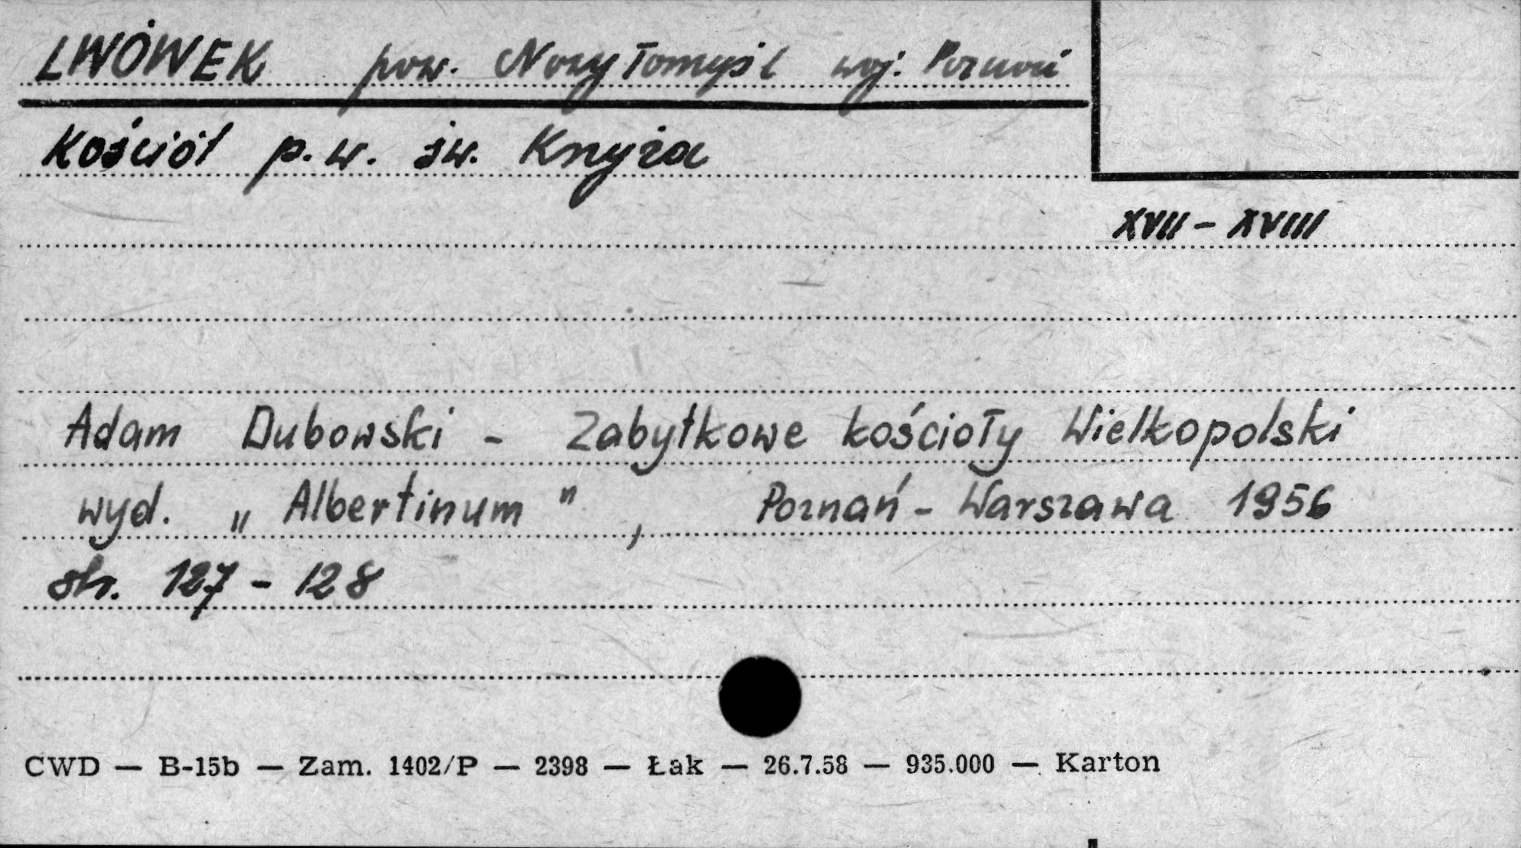 LWÓWEK pow. Nowy Tomyśl woj. Poznań
Kościół p.w. św. Krzyża
XVII – XVIII
Adam Dubowski – Zabytkowe kościoły Wielkopolski
wyd. „Albertinum", Poznań – Warszawa 1956
str. 127 – 128
CWD — B-15b — Zam. 1402/P — 2398 — Łak — 26.7.58 — 935.000 — Karton